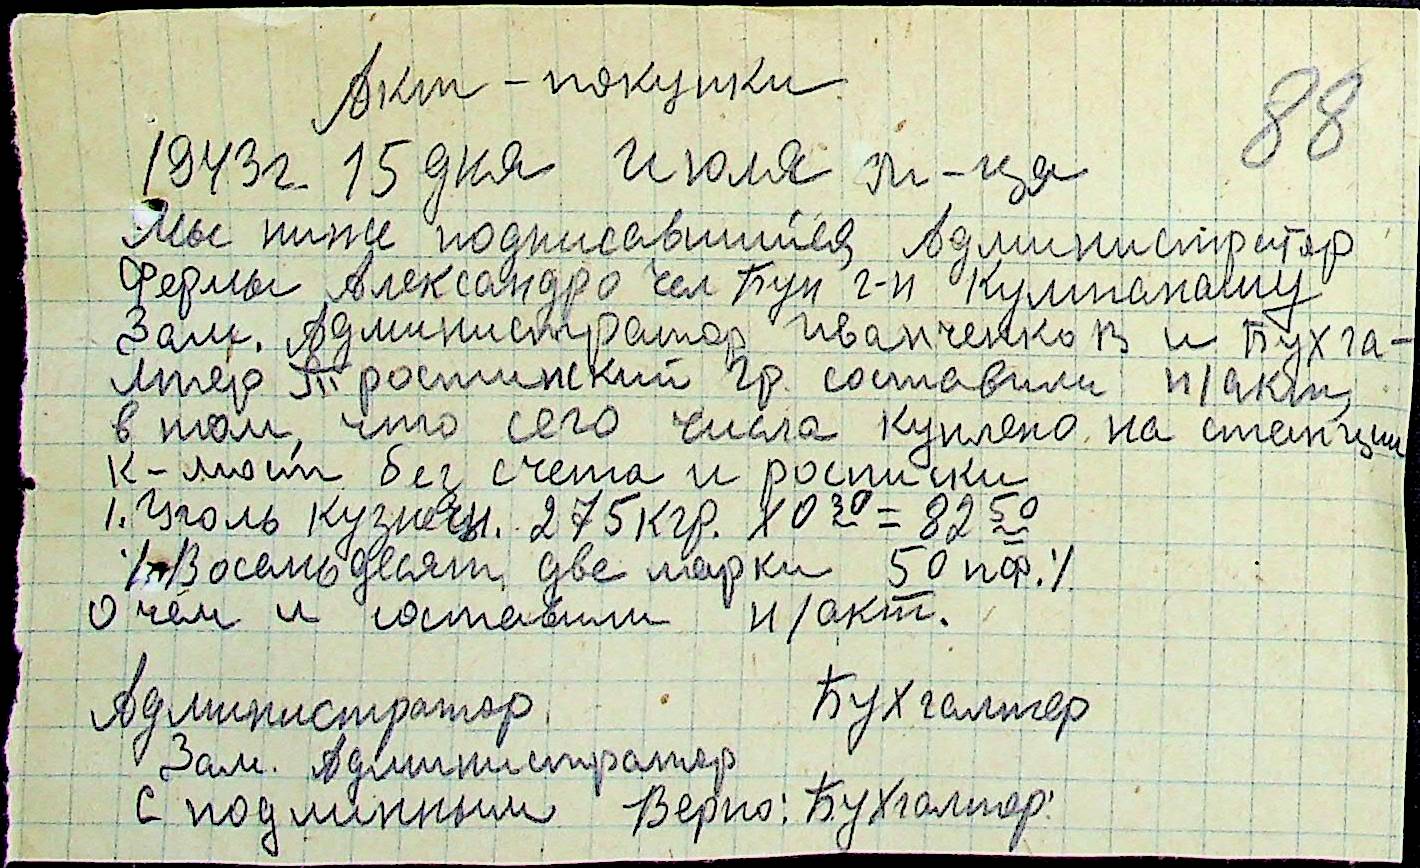 Акт - покупки
88
1943 г. 15 дня июля м-ца
Мы ниже подписавшийся Администратор
Фермы Александро чел Бун г-н Кулманашу
Зам. Администратор Иванченко В и Бухга-
лтер Тростинский Гр. составили н/акт,
в том, что сего числа куплено на станции
К-мост без счета и росписки
1. Уголь кузнечн. 275 кгр. х 0 30 = 82 50
/. Восемьдесят две марки 50 пф./.
О чём и составили н/акт.
Администратор Бухгалтер
Зам. Администратор
С подлинным Верно: Бухгалтер: